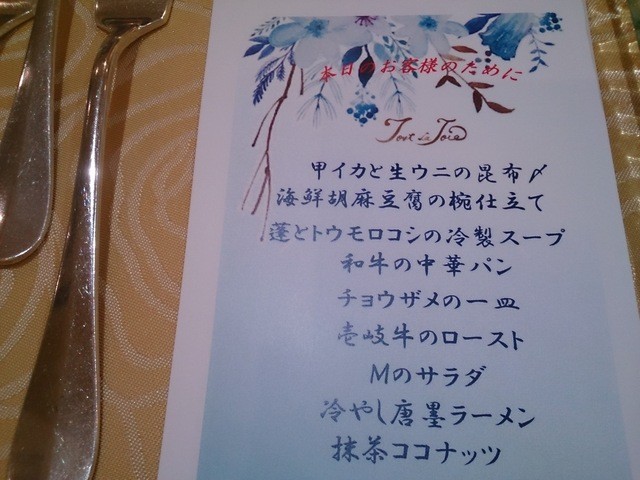 本日のお客様のために
Tort de Joie
甲イカと生ウニの昆布〆
海鮮胡麻豆腐の椀仕立て
蓬とトウモロコシの冷製スープ
和牛の中華パン
チョウザメの一皿
壱岐牛のロースト
Mのサラダ
冷やし唐墨ラーメン
抹茶ココナッツ